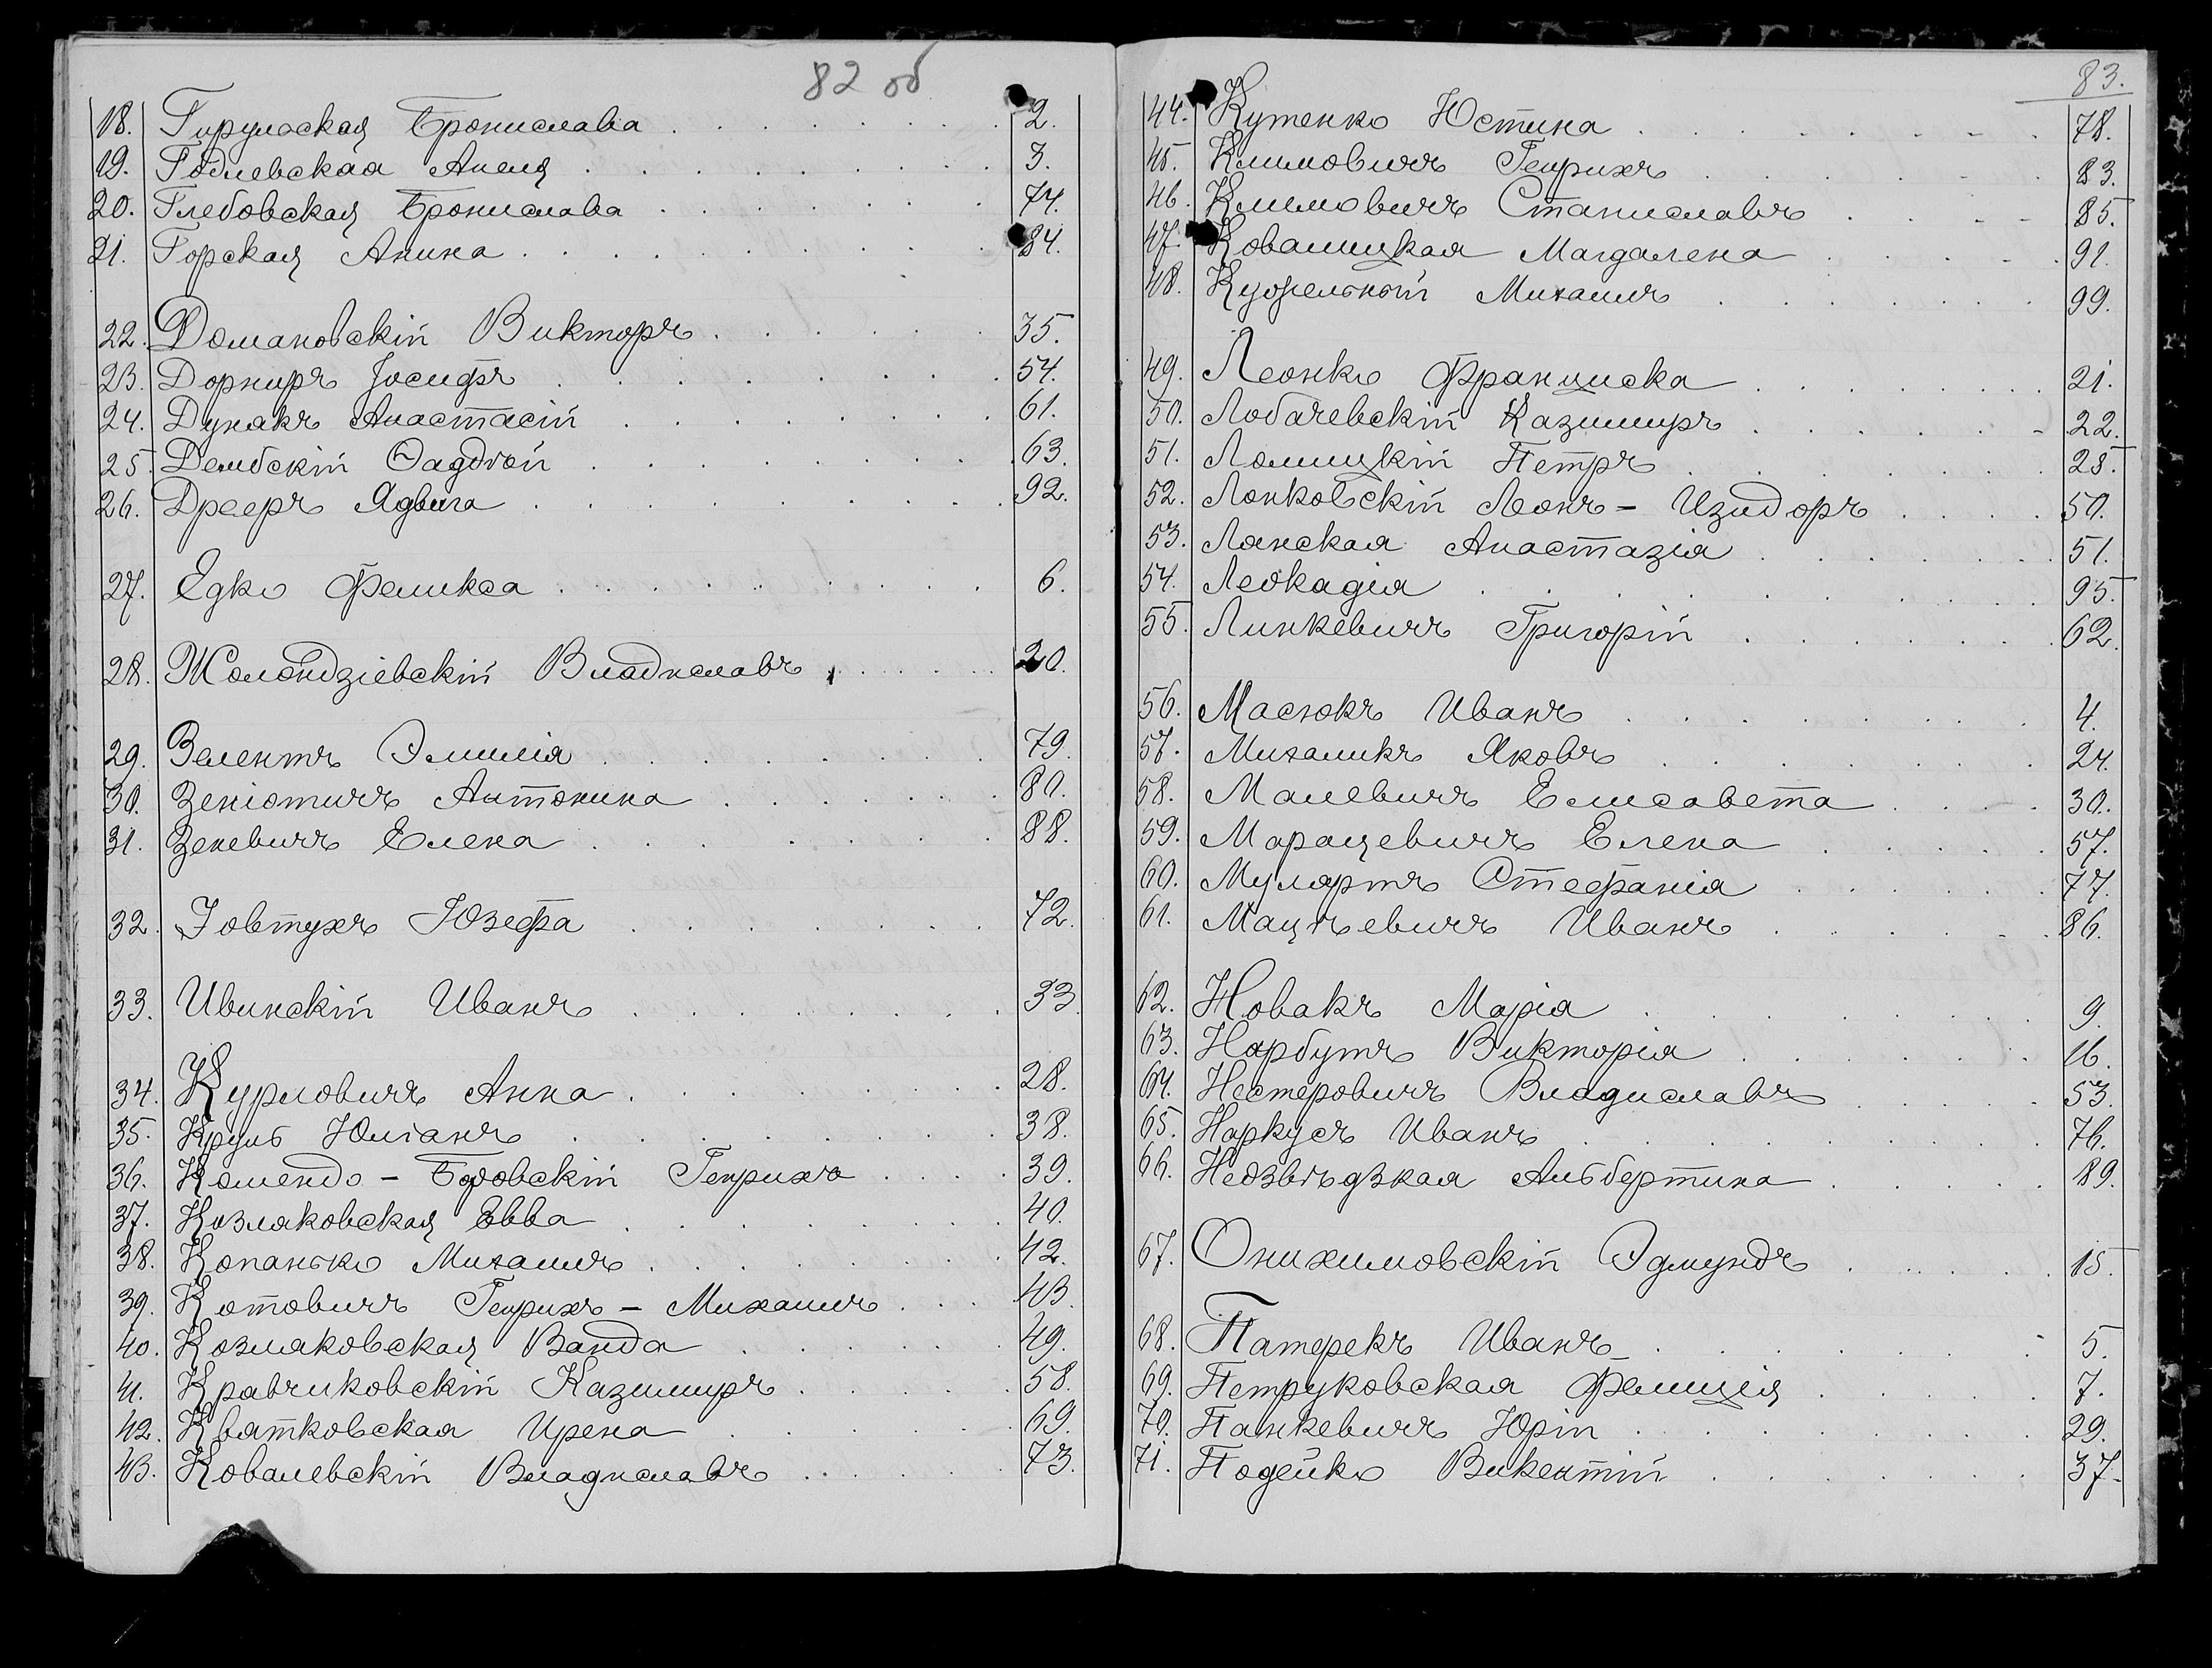 82 об
18. Гирулоская Бронислава 2.
19. Годлевская Анеля 3.
20. Глебовская Бронислава 74.
21. Горская Анина 84.
22. Домановскій Викторъ 35.
23. Дорниръ Іосифъ 54.
24. Дунакъ Анастасій 61.
25. Дембскій Фаддей 63.
26. Дрееръ Ядвига 92.
27. Едко Феликса 6.
28. Жолондзіевскій Владиславъ 20.
29. Зелентъ Эмилія 79.
30. Зеніотичъ Антонина 80.
31. Зеневичъ Елена 88.
32. Іовтухъ Юзефа 72.
33. Ивинскій Иванъ 33
34. Курловичъ Анна 28.
35. Круль Юліанъ 38.
36. Комендо - Боровскій Генрихъ 39.
37. Козляковская Евва 40.
38. Копанько Михаилъ 42.
39. Котовичъ Генрихъ - Михаилъ 43.
40. Козляковская Ванда 49.
41. Кравчиковскій Казимиръ 58.
42. Квятковская Ирена 69.
43. Ковалевскій Владиславъ 73.
83.
44. Кутенко Юстина 78.
45. Климовичъ Генрихъ 83.
46. Климовичъ Станиславъ 85.
47. Ковалицкая Магдалена 91.
48. Куфельный Михаилъ 99.
49. Леонко Франциска 21.
50. Лобачевскій Казимиръ 22.
51. Ломицкій Петръ 25.
52. Лонковскій Леонъ - Изидоръ 50.
53. Лянская Анастазія 51.
54. Леокадія 95.
55. Линкевичъ Григорій 62.
56. Масюкъ Иванъ 4.
57. Михаликъ Яковъ 24.
58. Малевичъ Елисавета 30.
59. Марацевичъ Елена 57.
60. Мулартъ Стефанія 77.
61. Мацѣевичъ Иванъ 86.
62. Новакъ Марія 9.
63. Нарбутъ Викторія 16.
64. Нестеровичъ Владиславъ 53.
65. Наркусъ Иванъ 76.
66. Недзвѣдзкая Альбертина 89.
67. Онихимовскій Эдмундъ 15.
68. Патерекъ Иванъ 5.
69. Петруковская Фелиція 7.
70. Панкевичъ Юрій 29.
71. Подейко Викентій 37.